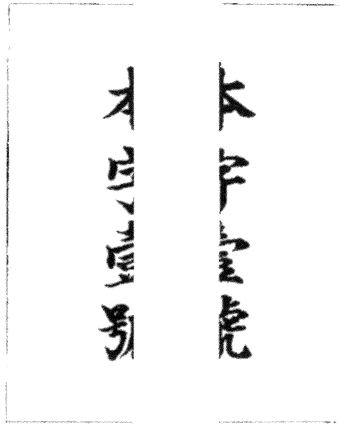 本字壹號